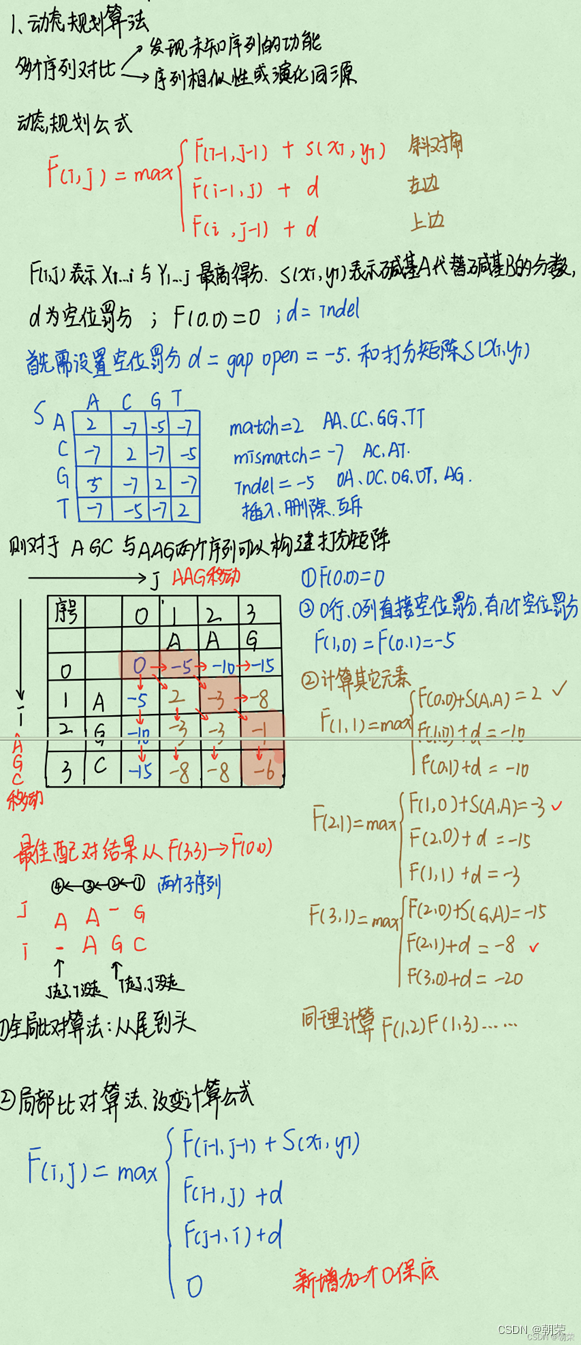 1、动态规划算法
多个序列对比 → 发现未知序列的功能
→ 序列相似性或演化同源
动态规划公式
F(i,j) = max { F(i-1,j-1) + S(xi,yi) 斜对角
F(i-1,j) + d 左边
F(i,j-1) + d 上边
F(i,j)表示X1...i与Y1...j最高得分. S(xi,yi)表示碱基A代替碱基B的分数,
d为空位罚分 ; F(0,0)=0 ;d=indel
首先需设置空位罚分d = gap open = -5. 和打分矩阵S(xi,yi)
S A C G T
A 2 -7 -5 -7
C -7 2 -7 -5
G 5 -7 2 -7
T -7 -5 -7 2
match=2 AA、CC、GG、TT
mismatch=-7 AC、AT.
indel=-5 0A、0C、0G、0T、AG.
插入、删除、互斥
则对于 AGC 与AAG两个序列可以构建打分矩阵
→ J AAG移动
序号 0 1 2 3
A A G
0 0 → -5 → -10 → -15
1 A -5 2 -3 -8
2 G -10 -3 -3 -1
3 C -15 -8 -8 -6
i
AGC移动
①F(0,0)=0
②0行、0列直接空位罚分,有几个空位罚分
F(1,0)=F(0,1)=-5
②计算其它元素
F(1,1)=max { F(0,0)+S(A,A)=2 ✓
F(1,0)+d=-10
F(0,1)+d=-10
F(2,1)=max { F(1,0)+S(A,A)=-3 ✓
F(2,0)+d=-15
F(1,1)+d=-3
F(3,1)=max { F(2,0)+S(G,A)=-15
F(2,1)+d=-8 ✓
F(3,0)+d=-20
同理计算 F(1,2)F(1,3)……
最佳配对结果从F(3,3)→F(0,0)
④←③←②←① 两个子序列
J A A - G
i - A G C
↑ ↑
J走,i没走 i走,J没走
①全局比对算法:从尾到头
②局部比对算法、改变计算公式
F(i,j) = max { F(i-1,j-1) + S(xi,yi)
F(i-1,j) + d
F(j-1,i) + d
0 新增加一个0保底
CSDN @朝荣